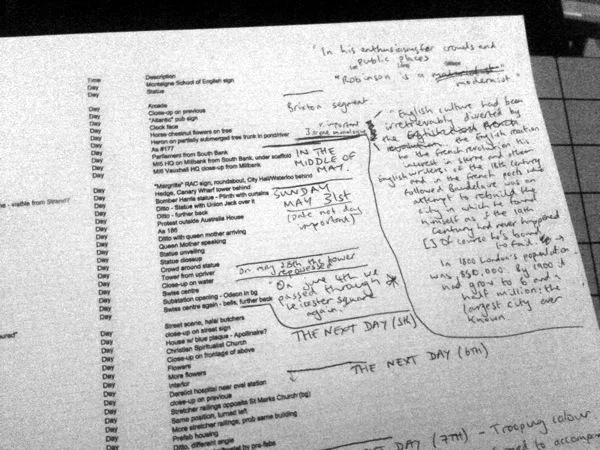 Time Description
Day Monteigne School of English sign
Day Statue
Day
Day Arcade
Day Close-up on previous
Day "Atlantic" pub sign
Day Clock face
Day Horse chestnut flowers on tree
Day Heron on partially submerged tree trunk in pond/river
Day As #177
Day Parliament from South Bank
Day MI6 HQ on Millbank from South Bank, under scaffold
Day MI6 Vauxhall HQ close-up from Millbank
Day
"Margritte" RAC sign, roundabout, City Hall/Waterloo behind
Day Hedge, Canary Wharf tower behind
- visible from Strand? Day Bomber Harris statue - Plinth with curtains
Day Ditto - Statue with Union Jack over it
Day Ditto - further back
Day Protest outside Australia House
Day As 186
Day Ditto with queen mother arriving
Day Queen Mother speaking
Day Statue unveiling
Day Statue closeup
Day Crowd around statue
Day Tower from upriver
Day Close-up on water
Day Swiss centre
Day Substation opening - Odeon in bg
Day Swiss centre again - bells, further back
Day
Day Street scene, halal butchers
Day close-up on street sign
Day House w/ blue plaque - Apollinaire?
Day Christian Spiritualist Church
Day Close-up on frontage of above
Day Flowers
Day More flowers
Day Interior
Day Derelict hospital near oval station
Day close-up on previous
Day Stretcher railings opposite St Marks Church (bg)
Day Same position, turned left
Day More stretcher railings, prob same building
Day Prefab housing
Day Ditto, different angle
by pre-fabs
"In his enthusiasms for crowds and
public places
"Robinson is a materialist"
modernist"
Brixton segment
important
"English culture had been
irretrievably diverted by
the English reaction
to the french revolution. His
interest in sterne and other
English writers of the 18th century
and in the french poets who
followed Baudelaire was an
attempt to rebuild the
city in which he found
himself as if the 19th
century had never happened
[] Of course he's bound
to fail.
In 1800 London's population
was 850,000. By 1900 it
had grow to 6 and a
half million: the
largest city ever
known.
IN THE
MIDDLE OF
MAY.
SUNDAY
MAY 31st
(Date not day
important)
On may 28th the tower
repossessed
"On June 4th we
passed through
Leicester square
again.
THE NEXT DAY (5th)
THE NEXT DAY (6TH)
DAY (7TH) - Trooping colour.
to accompan